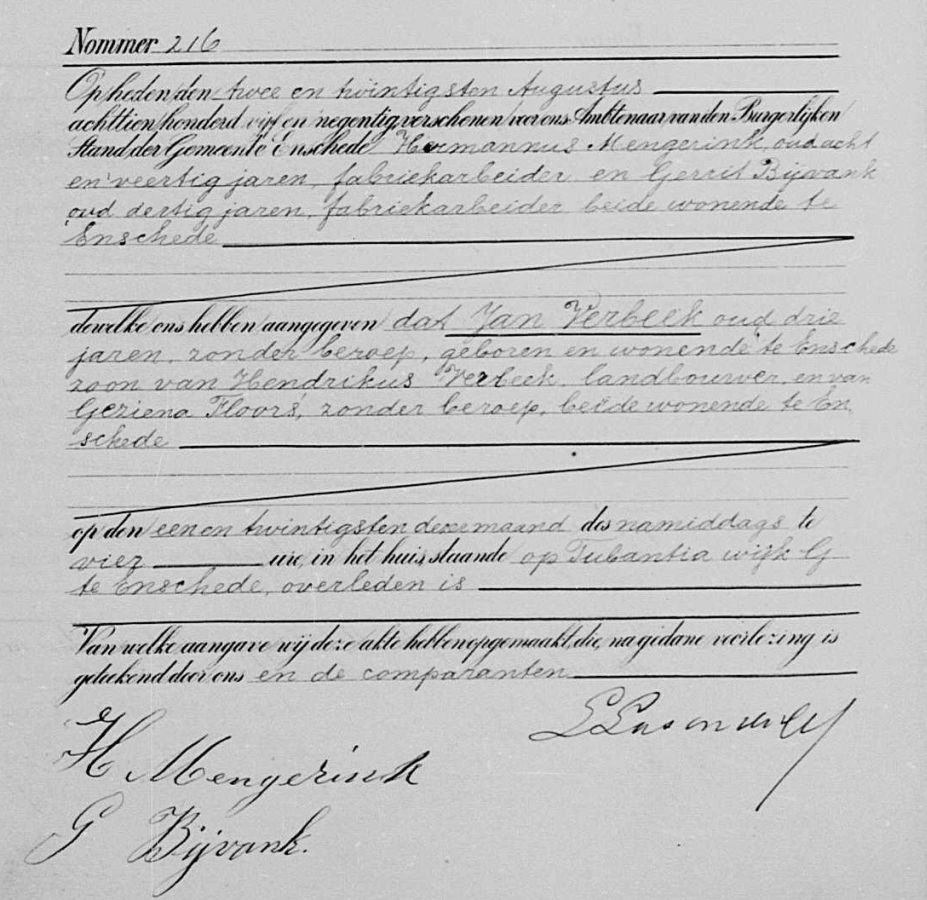 Nommer 216
Op heden den twee en twintigsten Augustus
achttien honderd vijf en negentig verschenen voor ons Ambtenaar van den Burgerlijken
Stand der Gemeente Enschede Hermannus Mengerink, oud acht
en veertig jaren, fabriekarbeider en Gerrit Bijvank
oud dertig jaren, fabriekarbeider beide wonende te
Enschede
dewelke ons hebben aangegeven dat Jan Verbeek oud drie
jaren, zonder beroep, geboren en wonende te Enschede
zoon van Hendrikus Verbeek, landbouwer, en van
Geziena Floors, zonder beroep, beide wonende te En
schede
op den een en twintigsten dezer maand des namiddags te
vier ure, in het huis, staande op Tubantia wijk G
te Enschede, overleden is
Van welke aangave wij deze akte hebben opgemaakt, die, na gedane voorlezing is
geteekend door ons en de comparanten
H Mengerink
G Bijvank.